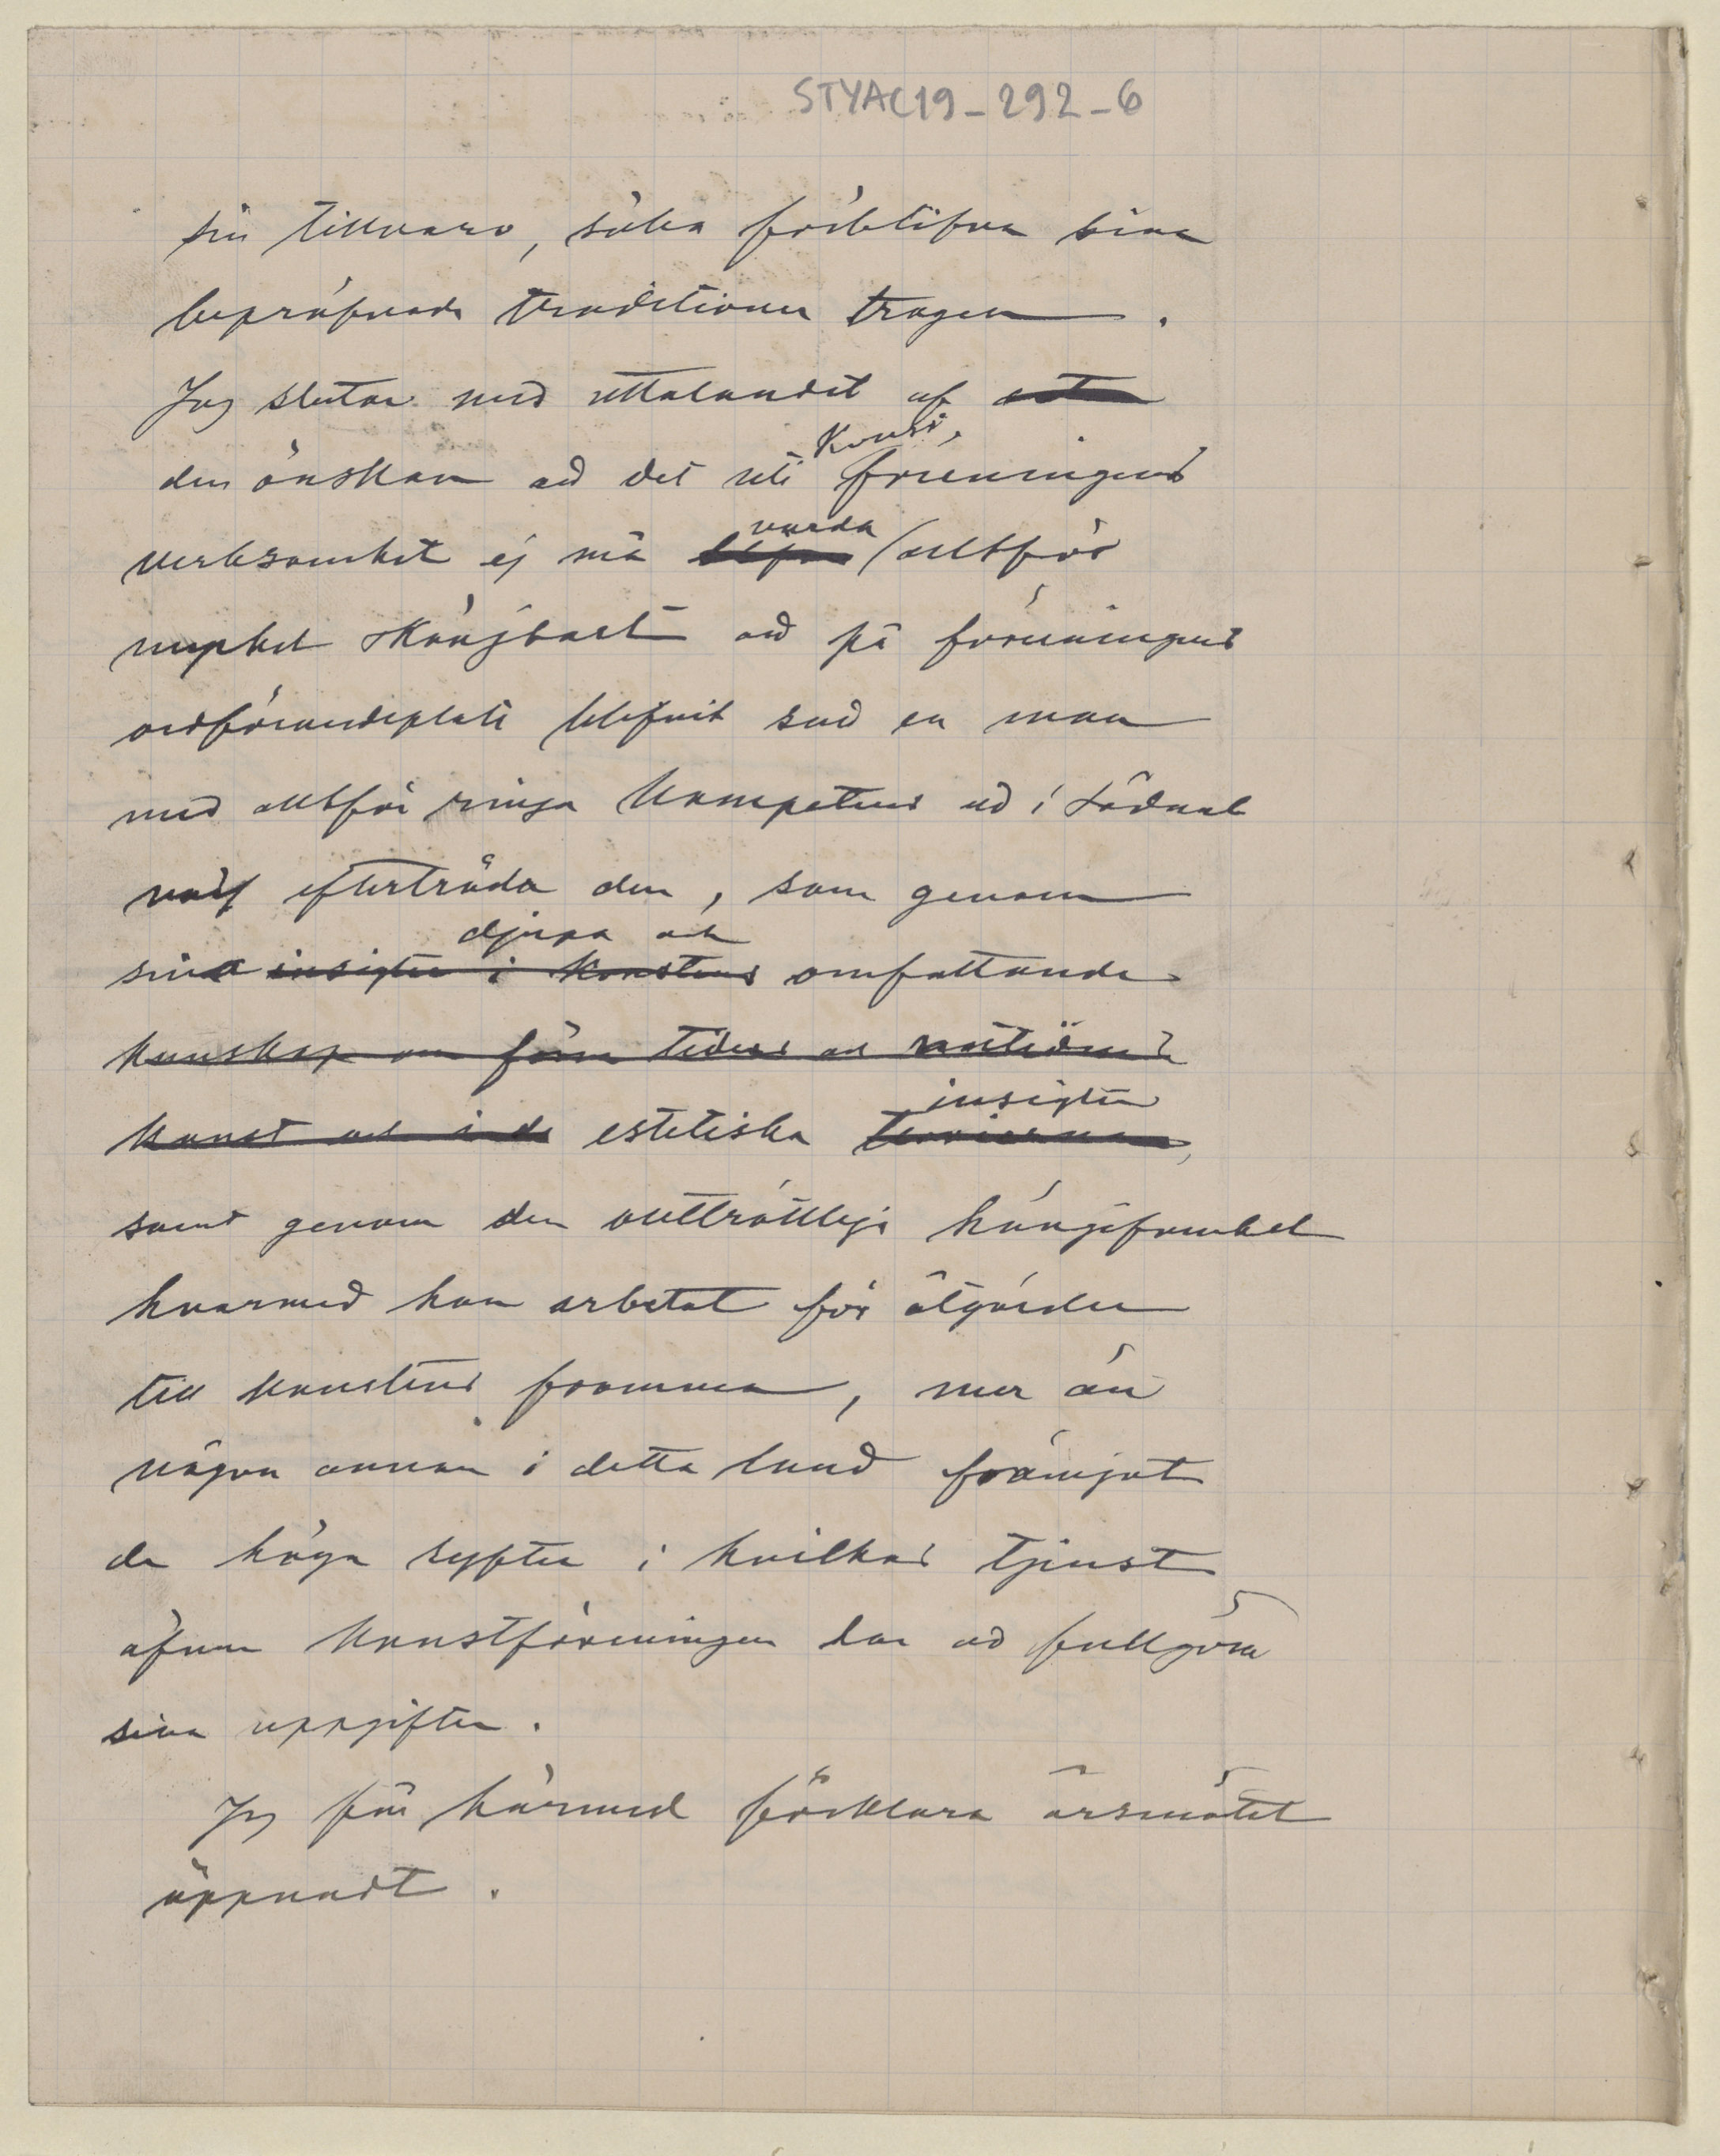 STYAC19_292_6
sin tillvaro, söka förblifva sina
bepröfvade traditioner trogen.
Jag slutar med uttalandet af
den önskan att det uti Konst,
föreningens
verksamhet ej må blifva varda alltför
mycket skönjbart att på föreningens
ordförandeplats blifvit satt en man
med alltför ringa kompetens att i sådant
värf efterträda den, som genom
sina insigter i konstens djupa och omfattande
kunskap om förna tiders och nutidens
konst och i de estetiska teorierna insigter,
samt genom den outtröttliga hängifvenhet
hvarmed han arbetat för åtgärder
till konstens fromma, mer än
någon annan i detta land främjat
de höga syften i hvilkas tjenst
äfven Konstföreningen har att fullgöra
sina uppgifter.
Jag får härmed förklara årsmötet
öppnadt.